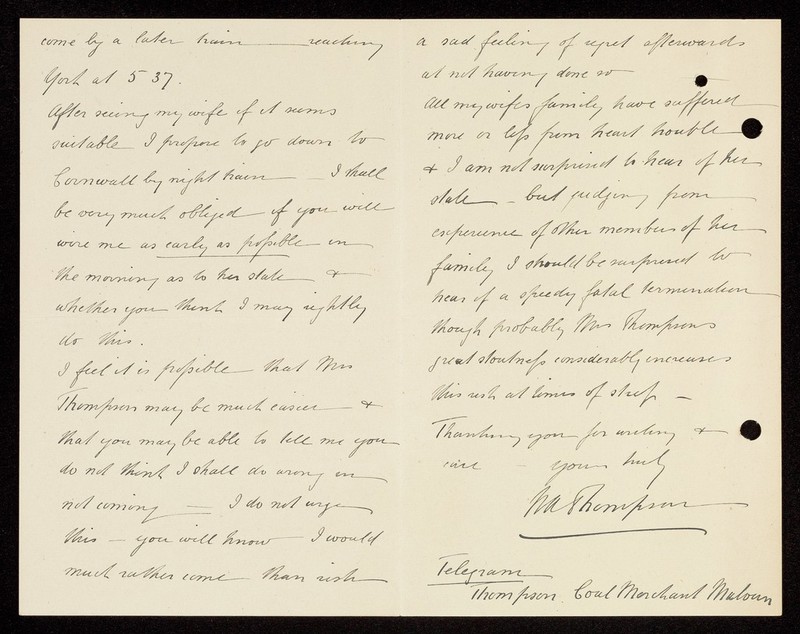 come by a later train — reaching
York at 5 37.
After seeing my wife if it seems
suitable I propose to go down to
Cornwall by night train — I shall
be very much obliged if you will
wire me as early as possible in
the morning as to her state &
whether you think I may rightly
do this.
I feel it is possible that Mrs
Thompson may be much easier &
that you may be able to tell me you
do not think I shall do wrong in
not coming — I do not urge
this — you will know I would
much rather come than risk
a sad feeling of regret afterwards
at not having done so
All my wifes family have suffered
more or less from heart trouble
& I am not surprised to hear of her
state — but judging from
experience of other members of her
family I should be surprised to
hear of a speedy fatal termination
though probably Mrs Thompsons
great stoutness considerably increases
this risk at times of stress —
Thanking you for writing &
care — yours truly
Thompson
Telegram
Thompson Coal Merchant Malvern